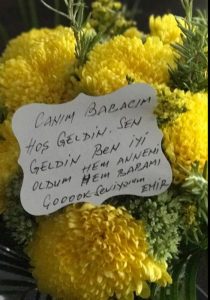 CANIM BABACIM
HOŞ GELDİN. SEN
GELDİN BEN İYİ
OLDUM HEM ANNEMİ
HEM BABAMI
ÇOOOOK SEVİYORUM
EMİR